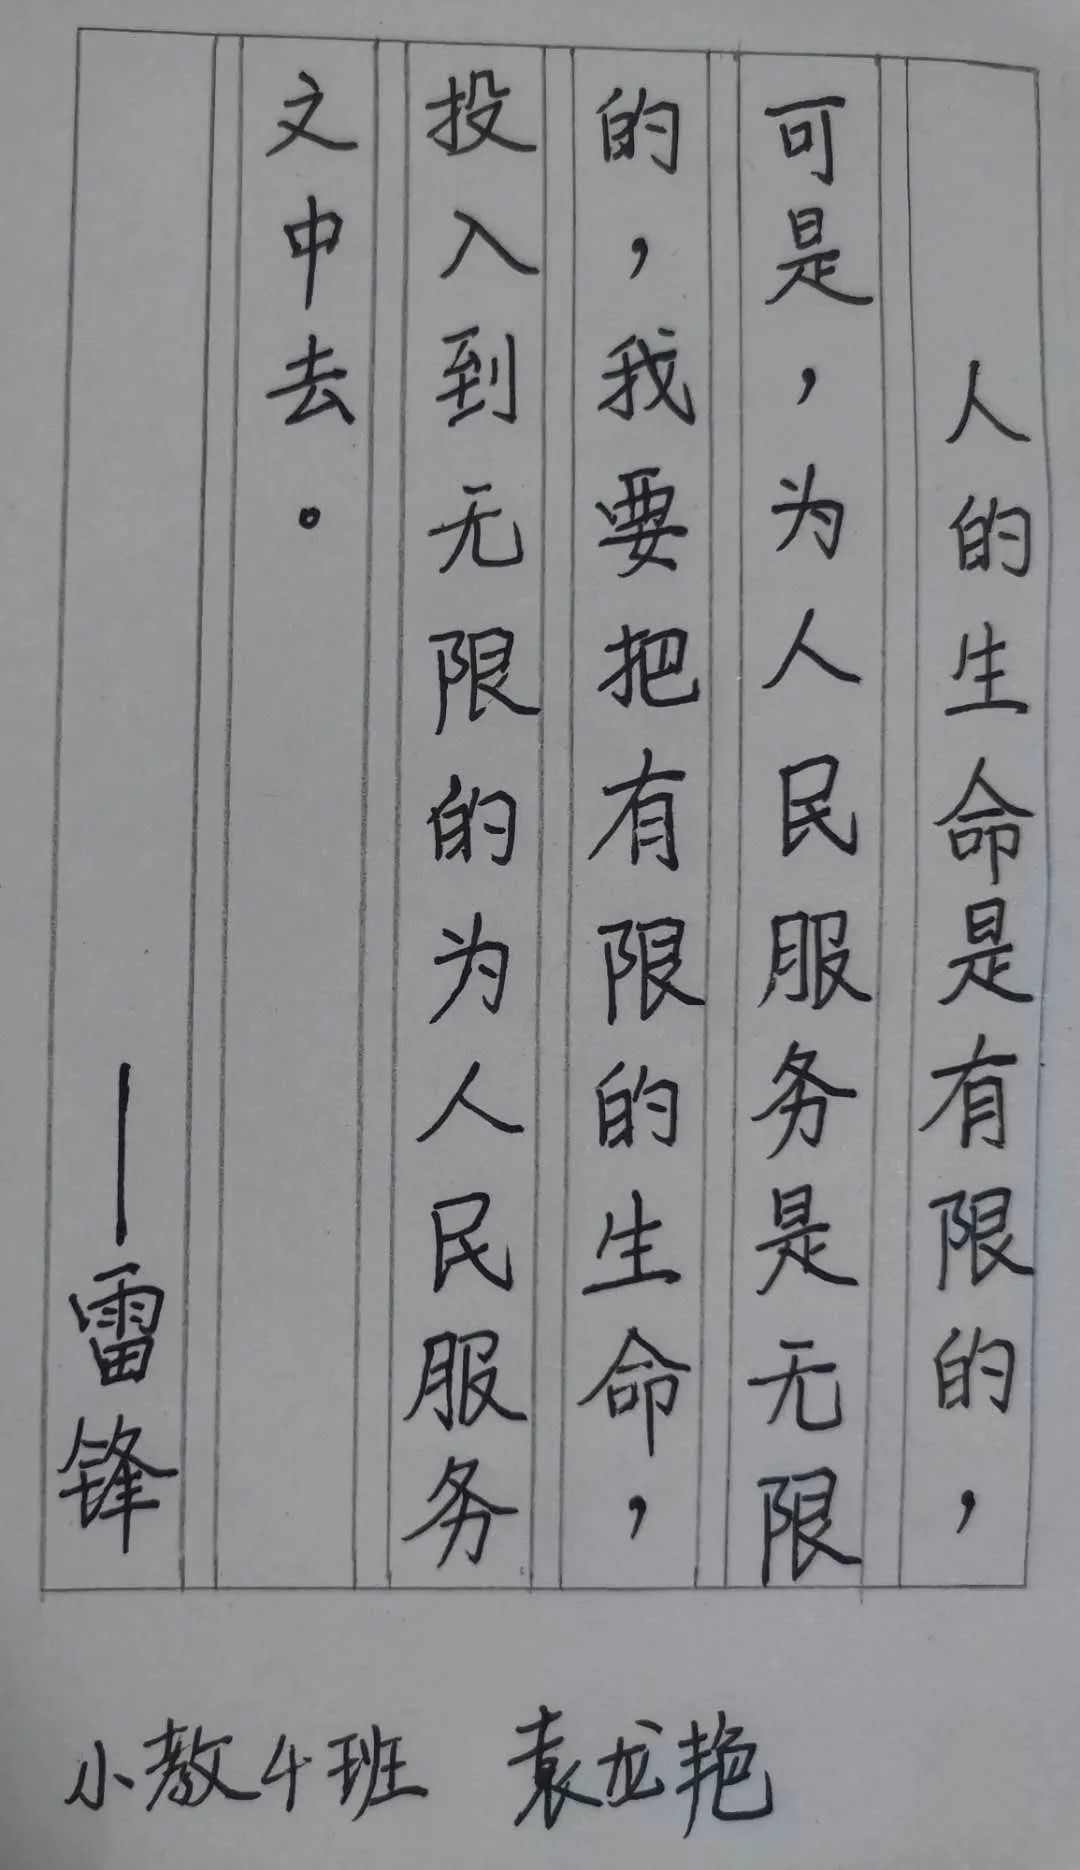 人的生命是有限的，
可是，为人民服务是无限
的，我要把有限的生命，
投入到无限的为人民服务
文中去。
——雷锋
小教4班 袁龙艳